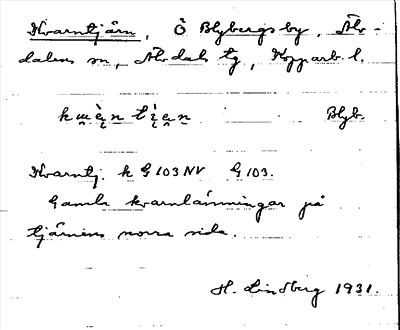 Kvarntjärn, Ö Blybergsby, Älv-
dalens sn, Älvdals tg, Kopparb. l.
Blyb.
Kvarntj. k G 103 NV G 103.
Gamla kvarnlämningar på
tjärnens norra sida.
H. Lindberg 1931.